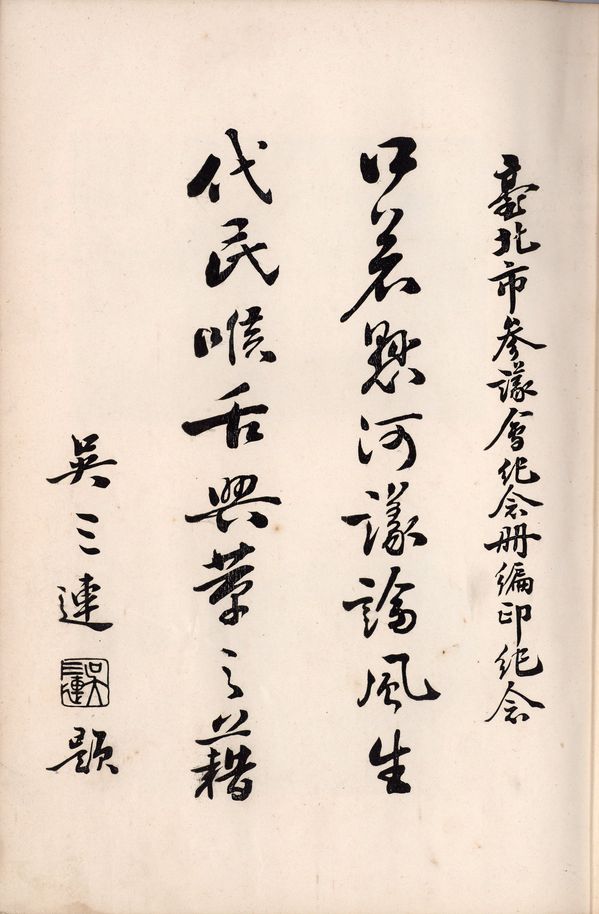 臺北市參議會紀念冊編印紀念
口若懸河議論風生
代民喉舌興革之藉
吳三連
吳三連
題